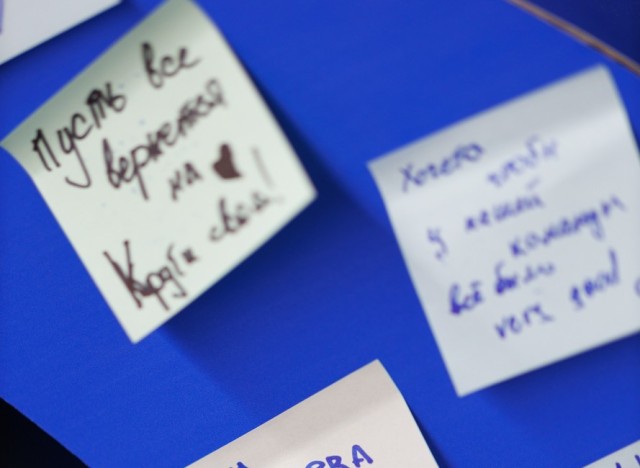 Пусть все
вернется
на ♥!
Круги свои
Хочется чтобы
у нашей
команды
всё было
very good
ВА